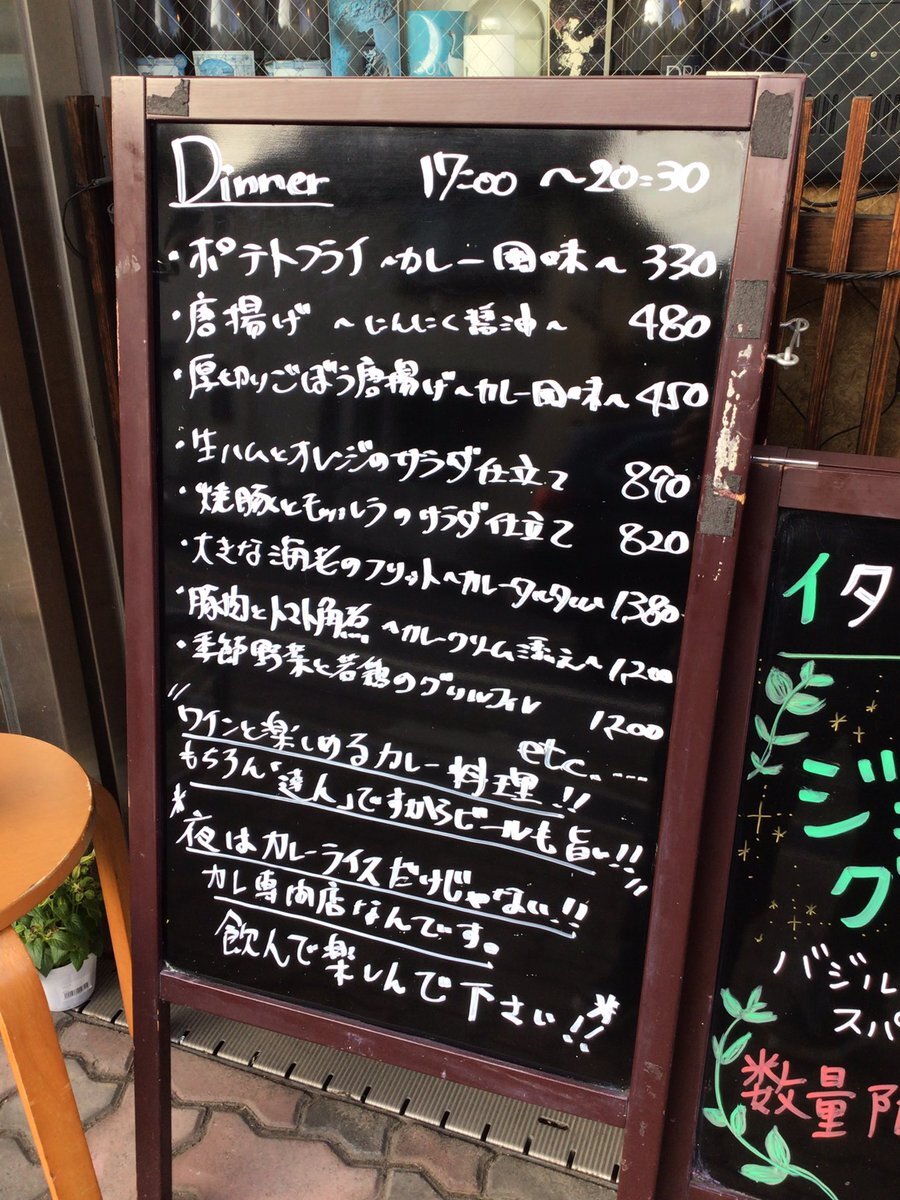 Dinner 17:00 ～20:30
・ポテトフライ ～カレー風味～ 330
・唐揚げ ～にんにく醤油～ 480
・厚切りごぼう唐揚げ～カレー風味～ 450
・生ハムとオレンジのサラダ仕立て 890
・焼豚とモッツァレラのサラダ仕立て 820
・大きな海老のフリット～カレータルタル～ 1380
・豚肉とトマト角煮 ～カレークリーム添え～ 1200
・季節野菜と若鶏のグリルフィレ 1200
etc....
ワインと楽しめるカレー料理!!
もちろん「達人」ですからビールも旨い!!
夜はカレーライスだけじゃない!!
カレー専門店なんです。
飲んで楽しんで下さい!!
イタ
ジ
グ
バジル
スパ
数量限